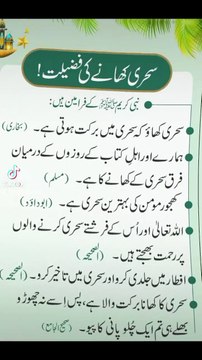 سحری کھانے کی فضیلت!
نبی کریم ﷺ کے فرامین ہیں:
سحری کھاؤ کہ سحری میں برکت ہوتی ہے۔ (بخاری)
ہمارے اور اہل کتاب کے روزوں کے درمیان
فرق سحری کے کھانے کا ہے۔ (مسلم)
کھجور مومن کی بہترین سحری ہے۔ (ابوداؤد)
اللہ تعالیٰ اور اُس کے فرشتے سحری کرنے والوں
پر رحمت بھیجتے ہیں۔ (الصحیحہ)
افطار میں جلدی کرو اور سحری میں تاخیر کرو۔ (الصحیحہ)
سحری کا کھانا برکت والا ہے، پس اِسے نہ چھوڑو
بھلے ہی تم ایک چُلو پانی کا پیو۔ (صحیح الجامع)